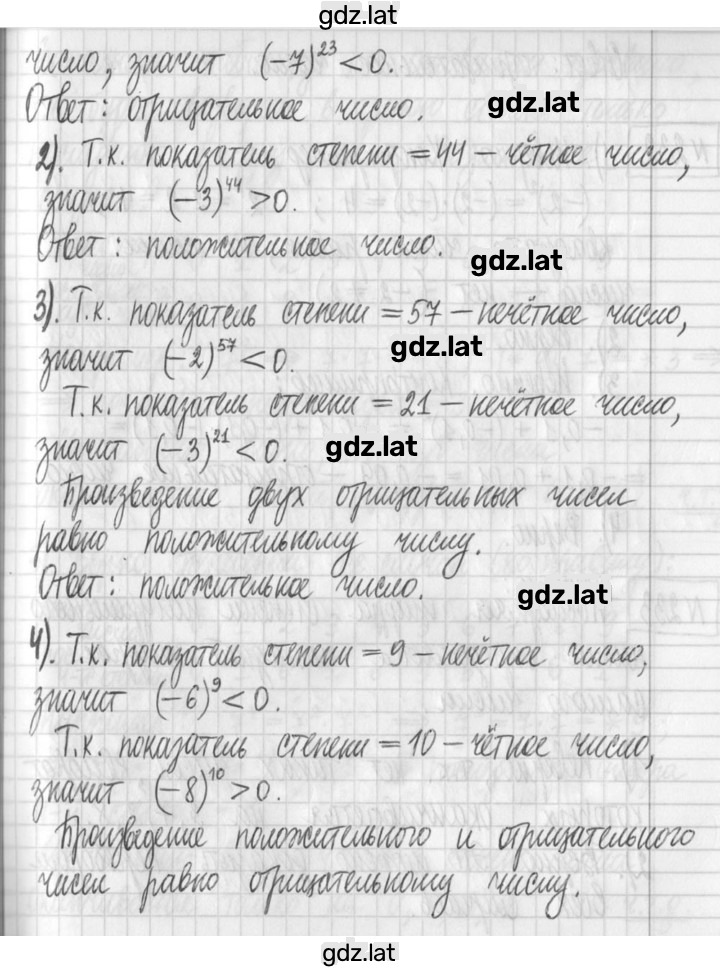 gdz.lat
число, значит (−7)²³ < 0.
Ответ: отрицательное число. gdz.lat
2). Т.к. показатель степени = 44 – чётное число,
значит (−3)⁴⁴ > 0.
Ответ: положительное число. gdz.lat
3). Т.к. показатель степени = 57 – нечётное число,
значит (−2)⁵⁷ < 0. gdz.lat
Т.к. показатель степени = 21 – нечётное число,
значит (−3)²¹ < 0. gdz.lat
Произведение двух отрицательных чисел
равно положительному числу.
Ответ: положительное число. gdz.lat
4). Т.к. показатель степени = 9 – нечётное число,
значит (−6)⁹ < 0.
Т.к. показатель степени = 10 – чётное число,
значит (−8)¹⁰ > 0.
Произведение положительного и отрицательного
чисел равно отрицательному числу.
gdz.lat